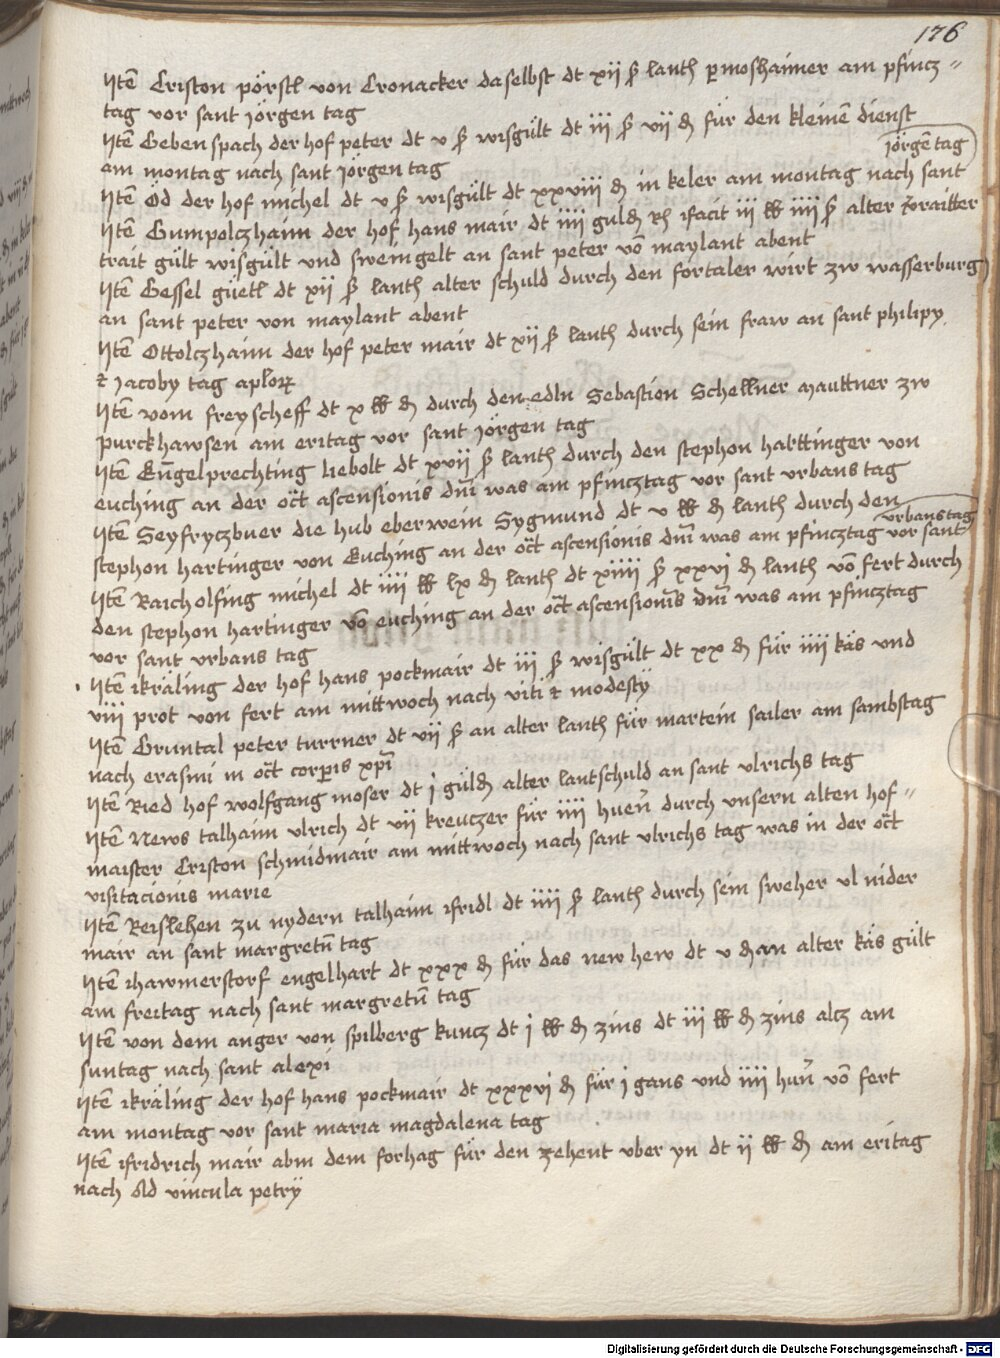 176
Jtē Criston pörstl von Cronacker daselbst dt xij ß lantħ permoshaimer am pfincz=
tag vor sant Jörgen tag
Jtē Gebenspach der hof peter dt v ß wisgült dt iij ß vij ₰ für den kleinē dienst
am montag nach sant Jörgen tag
Jtē Öd der hof michel dt v ß wisgült dt xxviij ₰ in keler am montag nach sant
jörgē tag
Jtē Gumpolczhaim der hof hans mair dt iiij guld Rh facit iij ℔ iiij ß alter
trait gült wisgült und sweingelt an sant peter vō maylant abent
Jtē Gessel güetl dt xij ß lantħ alter schuld durch den fortaler wirt zw wasserburg
an sant peter von maylant abent
Jtē Ottolczhaim der hof peter mair dt xij ß lantħ durch sein fraw an sant philipy
⁊ Jacoby tag aplorꝝ
Jtē vom freyscheff dt x ℔ ₰ durch den edln Sebastion Schellner mauttner zw
purckhawsen am eritag vor sant Jörgen tag
Jtē Engelprechting liebolt dt xvij ß lantħ durch den stephon harttinger von
euching an der oct̄ ascensionis dn̄i was am pfincztag vor sant vrbans tag
Jtē Seyfryczbuer die hub eberwein Sygmund dt v ℔ ₰ lantħ durch den
stephon hartinger von Euching an der oct̄ ascensionis dn̄i was am pfincztag vor sant
vrbans tag
Jtē Raicholfing michel dt iiij ℔ lx ₰ lantħ dt xiiij ß xxvj ₰ lantħ vō fert durch
den stephon hartinger vō euching an der oct̄ ascensionis dn̄i was am pfincztag
vor sant vrbans tag
Jtē kräling der hof hans pockmair dt iij ß wisgült dt xx ₰ für iiij käs vnd
viij prot von fert am mittwoch nach viti ⁊ modesty
Jtē Gruntal peter turrner dt vij ß an alter lantħ für martein sailer am sambstag
nach erasmi in oct̄ corp̄is xp̄i
Jtē Ried hof wolfgang moser dt j güld alter lantschuld an sant vlrichs tag
Jtē News talhaim vlrich dt vij kreuczer für iiij huen̄ durch vnsern alten hof=
maister Criston schmidmair am mittwoch nach sant vlrichs tag was in der oct̄
visitacionis marie
Jtē Reislehen zu nydern talhaim fridl dt iiij ß lantħ durch sein sweher vl nider
mair an sant margretn̄ tag
Jtē hawmerstorf engelhart dt xxx ₰ für das new hew dt v ₰ an alter käs gült
am freitag nach sant margretn̄ tag
Jtē von dem anger von spilberg kuncz dt j ℔ ₰ zins dt iij ℔ ₰ zins altz am
suntag nach sant alexi
Jtē kräling der hof hans pockmair dt xxxvj ₰ für j gans vnd iiij hun̄ vō fert
am montag vor sant maria magdalena tag
Jtē fridrich mair abm dem forhag für den zehent vber yn dt ij ℔ ₰ am eritag
nach ad vincula petry
Digitalisierung gefördert durch die Deutsche Forschungsgemeinschaft - DFG